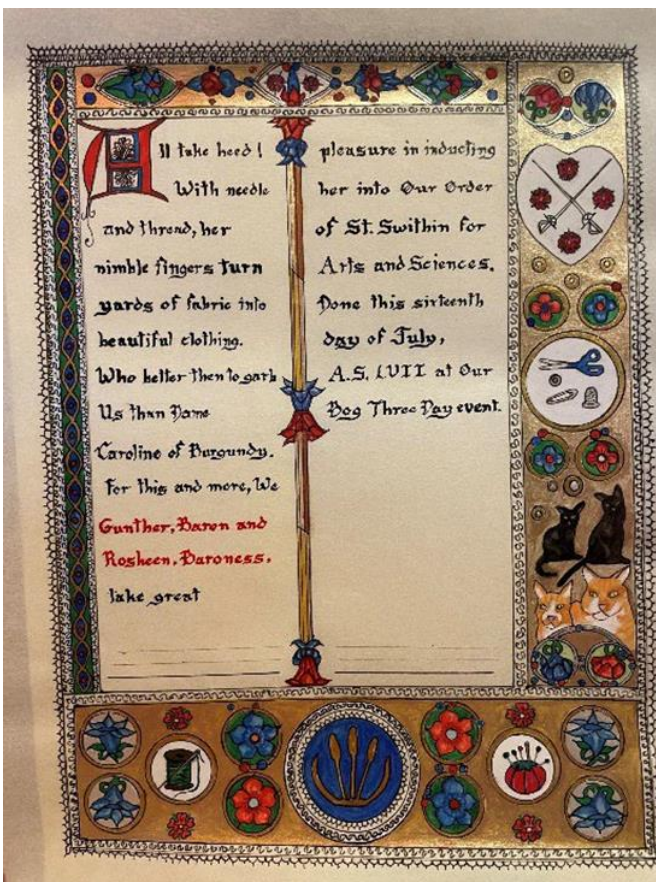 All take heed!
With needle
and thread, her
nimble fingers turn
yards of fabric into
beautiful clothing.
Who better then to garb
Us than Dame
Caroline of Burgundy.
For this and more, We
Gunther, Baron and
Rosheen, Baroness,
take great
pleasure in inducting
her into Our Order
of St. Swithin for
Arts and Sciences.
Done this sixteenth
day of July,
A.S. LVII at Our
Bog Three Day event.